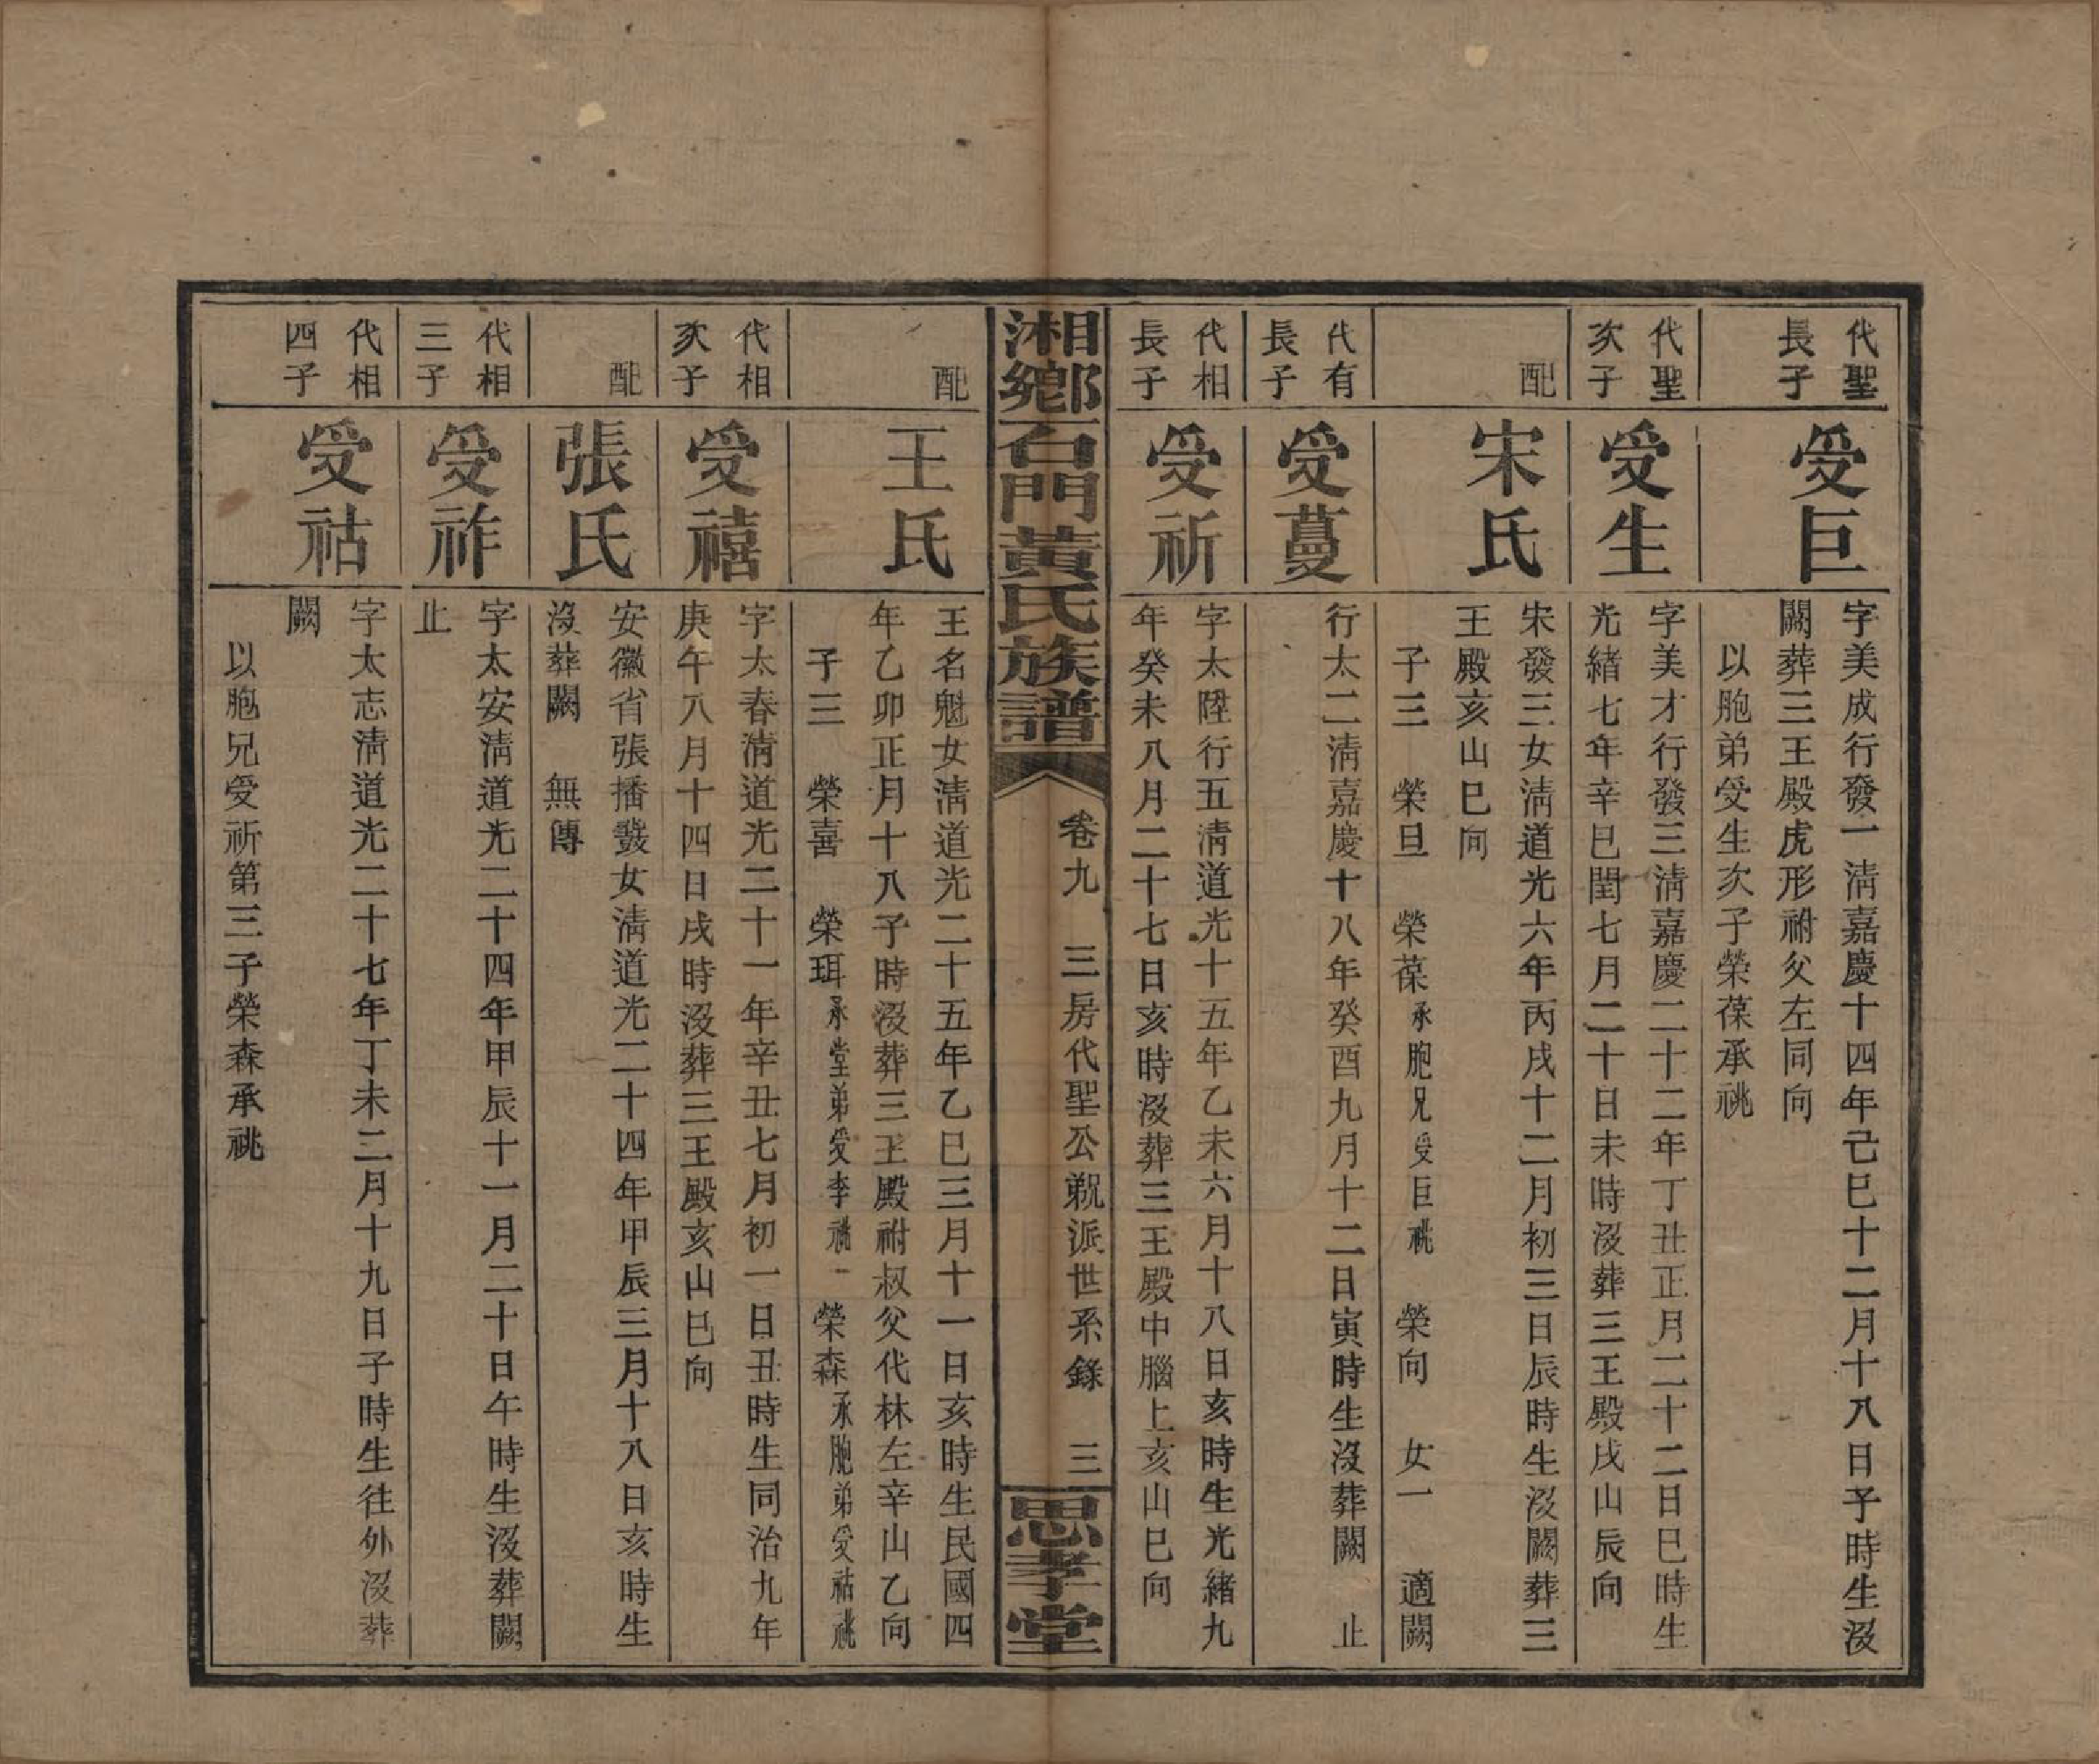 代聖
長子
受巨
字美成行發一淸嘉慶十四年己巳十二月十八日子時生沒
闕葬三王殿虎形祔父左同向
以胞弟受生次子榮葆承祧
代聖
次子
受生
字美才行發三淸嘉慶二十二年丁丑正月二十二日巳時生
光緒七年辛巳閏七月二十日未時沒葬三王殿戌山辰向
配
宋氏
宋發三女淸道光六年丙戌十二月初三日辰時生沒闕葬三
王殿亥山巳向
子三　榮旦　榮葆承胞兄受巨祧　榮向　女一　適闕
代有
長子
受蔓
行太二淸嘉慶十八年癸酉九月十二日寅時生沒葬闕　止
代相
長子
受祈
字太陞行五淸道光十五年乙未六月十八日亥時生光緒九
年癸未八月二十七日亥時沒葬三王殿中腦上亥山巳向
湘鄉石門黃氏族譜
卷九　三房代聖公覣派世系錄　三
思孝堂
配
王氏
王名魁女淸道光二十五年乙巳三月十一日亥時生民國四
年乙卯正月十八子時沒葬三王殿祔叔父代林左辛山乙向
子三　榮喜　榮珥承堂弟受李祧　榮森承胞弟受祜祧
代相
次子
受禧
字太春淸道光二十一年辛丑七月初一日丑時生同治九年
庚午八月十四日戌時沒葬三王殿亥山巳向
配
張氏
安徽省張播發女淸道光二十四年甲辰三月十八日亥時生
沒葬闕　無傳
代相
三子
受祚
字太安淸道光二十四年甲辰十一月二十日午時生沒葬闕
止
代相
四子
受祜
字太志淸道光二十七年丁未二月十九日子時生往外沒葬
闕
以胞兄受祈第三子榮森承祧